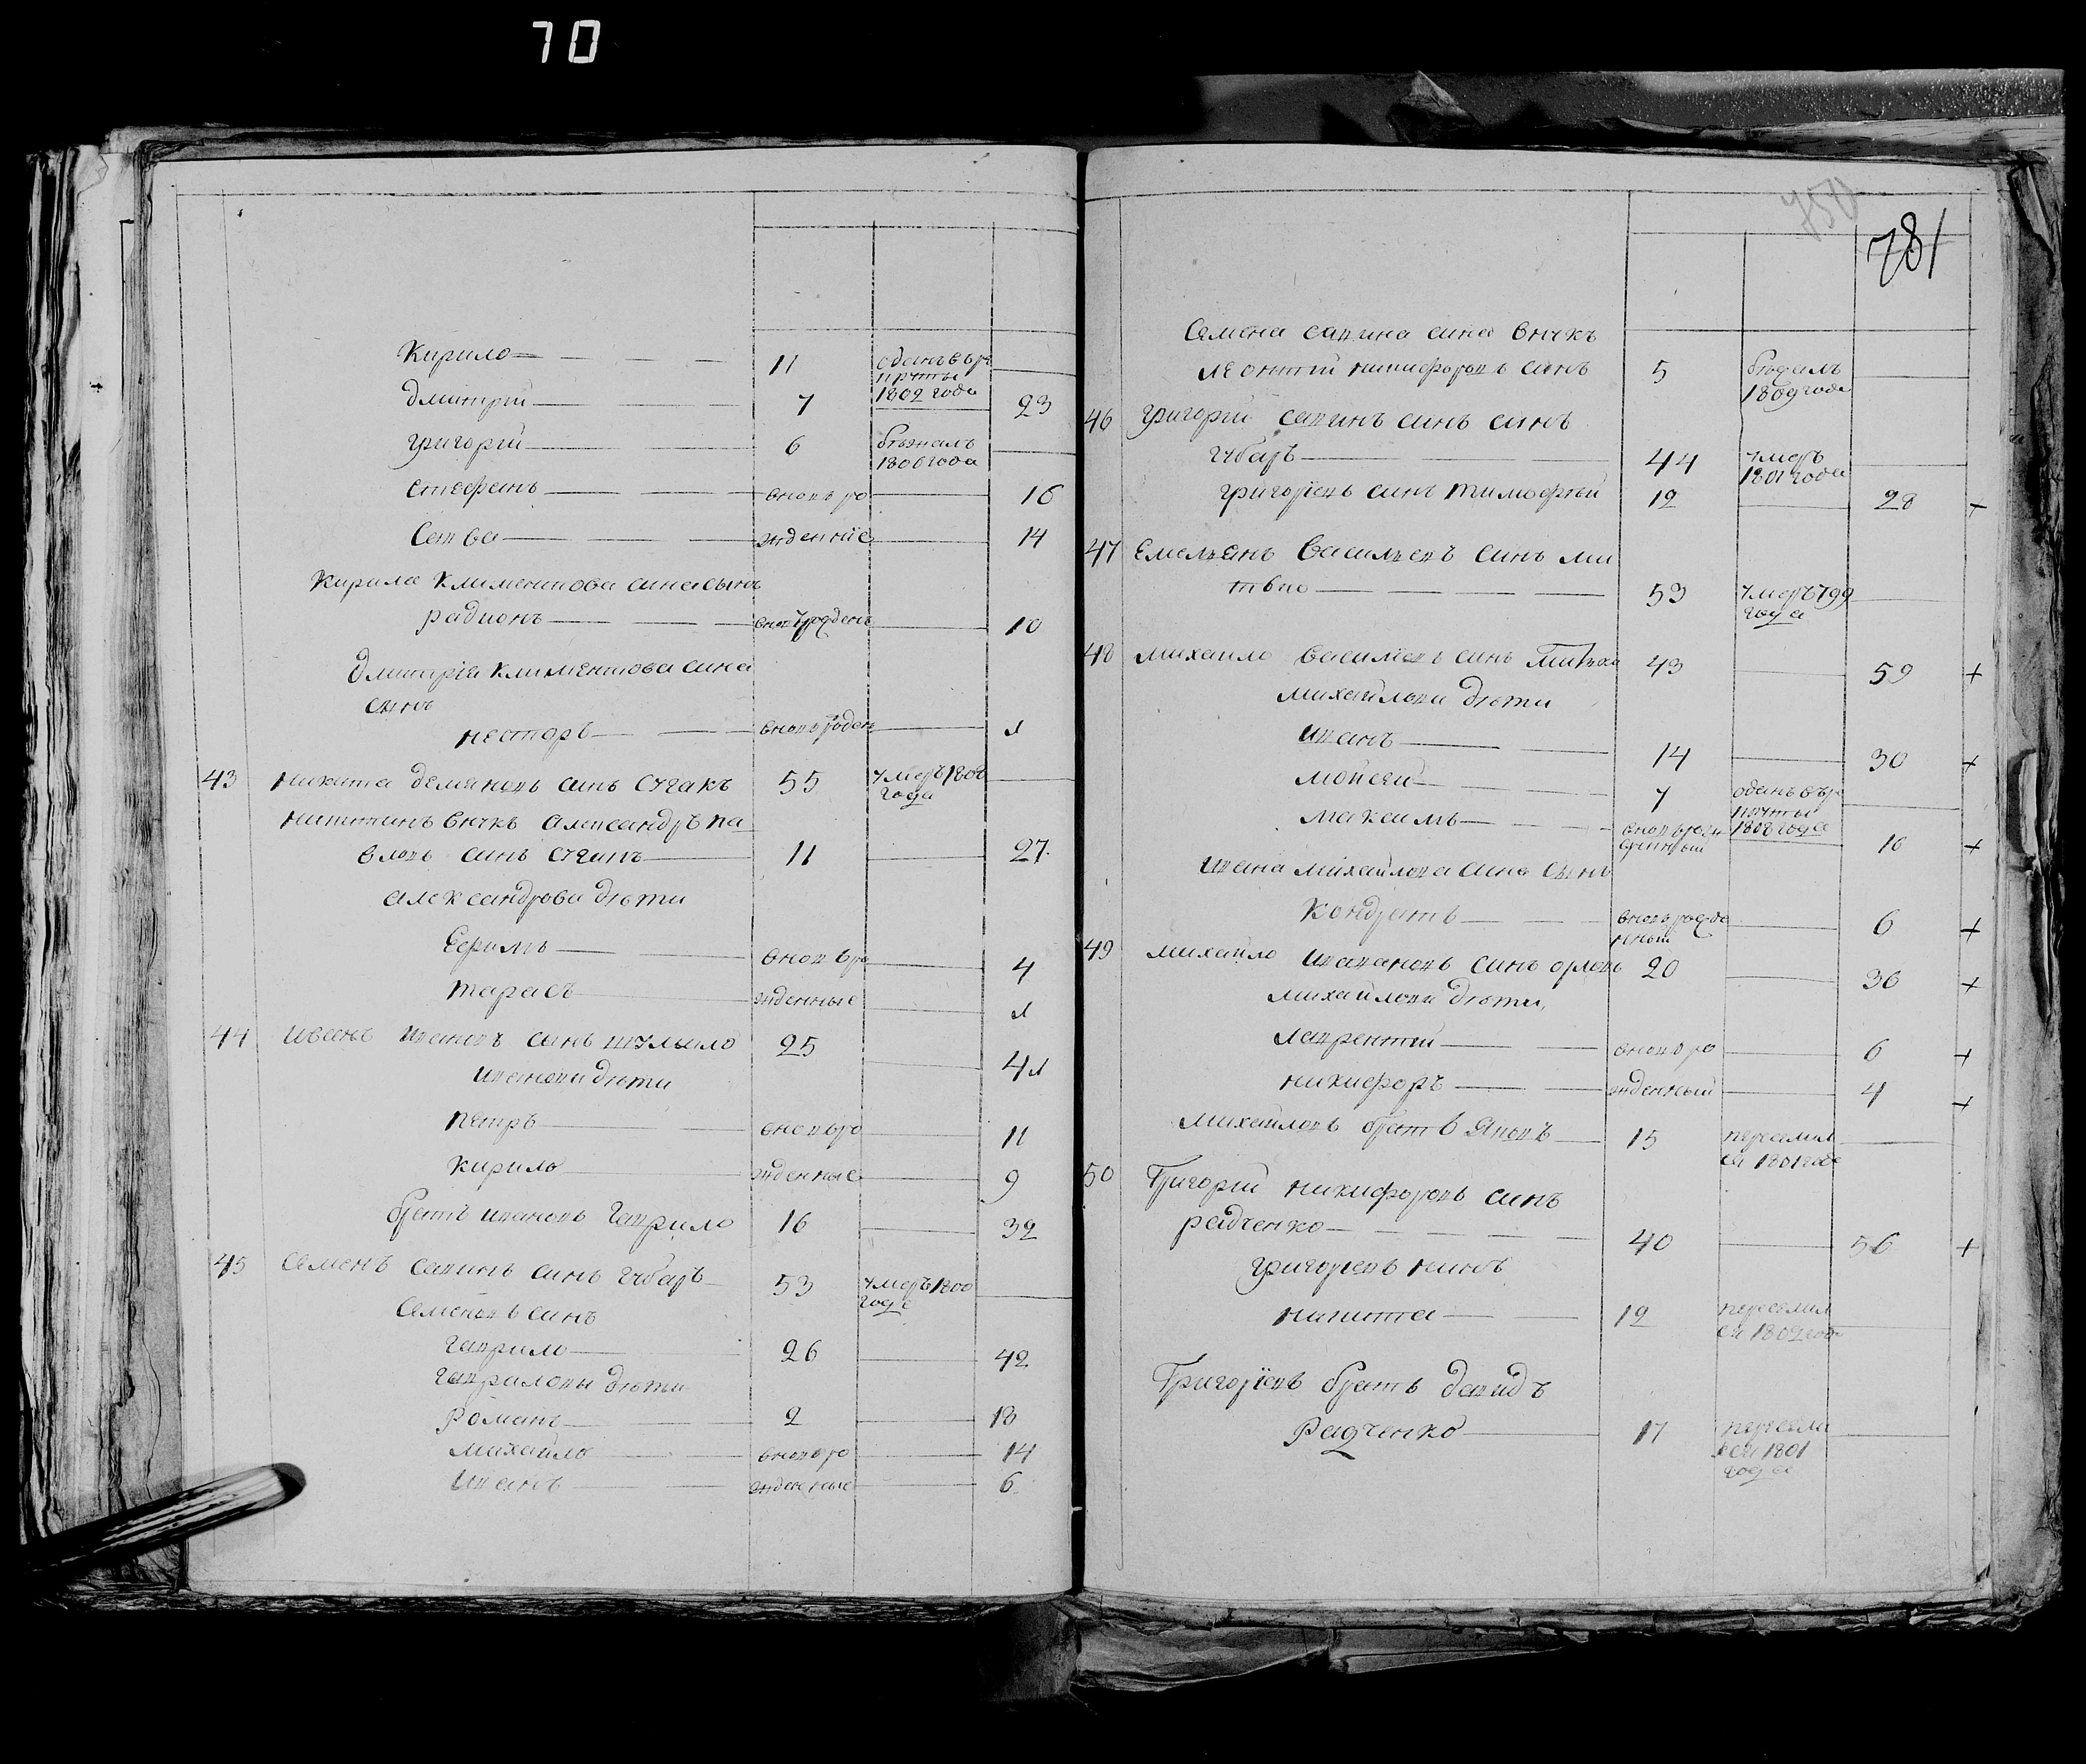 70
Кирило 11 сданъ въ ре
крути
1802 года
Дмитрій 7 23
Григорій 6 бѣжалъ
1806 года
Стефанъ вновь ро 16
Савва жденніе 14
Кирила Климентова сина сынъ
Радионъ вновьрожденъ 10
Дмитрія Климентова сина
сынъ
Несторъ вновь рожден 1
43 Никита Демяновъ синъ Сугакъ 55 умеръ 1808
года
Никитинъ внукъ Александръ Па
вловъ синъ Сугакъ 11 27
Александрови дѣти
Ефимъ вновь ро 4
Тарасъ жденные 1
44 Иванъ Ивановъ синъ Шулыло 25 41
Иванови дѣти
Петръ вновь ро 11
Кирило жденные 9
Братъ Ивановъ Гаврило 16 32
45 Семенъ Савинъ синъ Губаръ 53 умеръ 1800
года
Семеновъ синъ
Гаврило 26 42
Гаврилови дѣти
Романъ 2 18
Михайло вновь ро 14
Иванъ жденные 6
750
781
Семена Савина сина внукъ
Леонтій Никифоровъ синъ 5 1809 года
46 Григорій Савинъ синъ синъ
Губаръ 44 умеръ
1801 года
Григоріевъ синъ Тимофѣй 12 28 +
47 Емельянъ Васильевъ синъ Ми
тько 53 умеръ 799
года
48 Михайло Васильевъ синъ Митько 43 59 +
Михайлови дѣти
Иванъ 14 30 +
Мойсей 7 сданъ въ ре
крути
1808 года
Максимъ вновь рож
денный 10 +
Ивана Михайлова сина сынъ
Кондратъ вновь рожде
нный 6 +
49 Михайло синъ Орловъ 20 36 +
Михайлови дѣти
Лаврентій вновь ро 6 +
Никифоръ жденный 4 +
Михайловъ братъ Яковъ 15 переселил
ся 1801 года
50 Григорій Никифоровъ синъ
Радченко 40 56 +
Григоріевъ синъ
Никита 12 переселил
ся 1802 года
Григоріевъ братъ Давидъ
Радченко 17 пересели
лся 1801
года